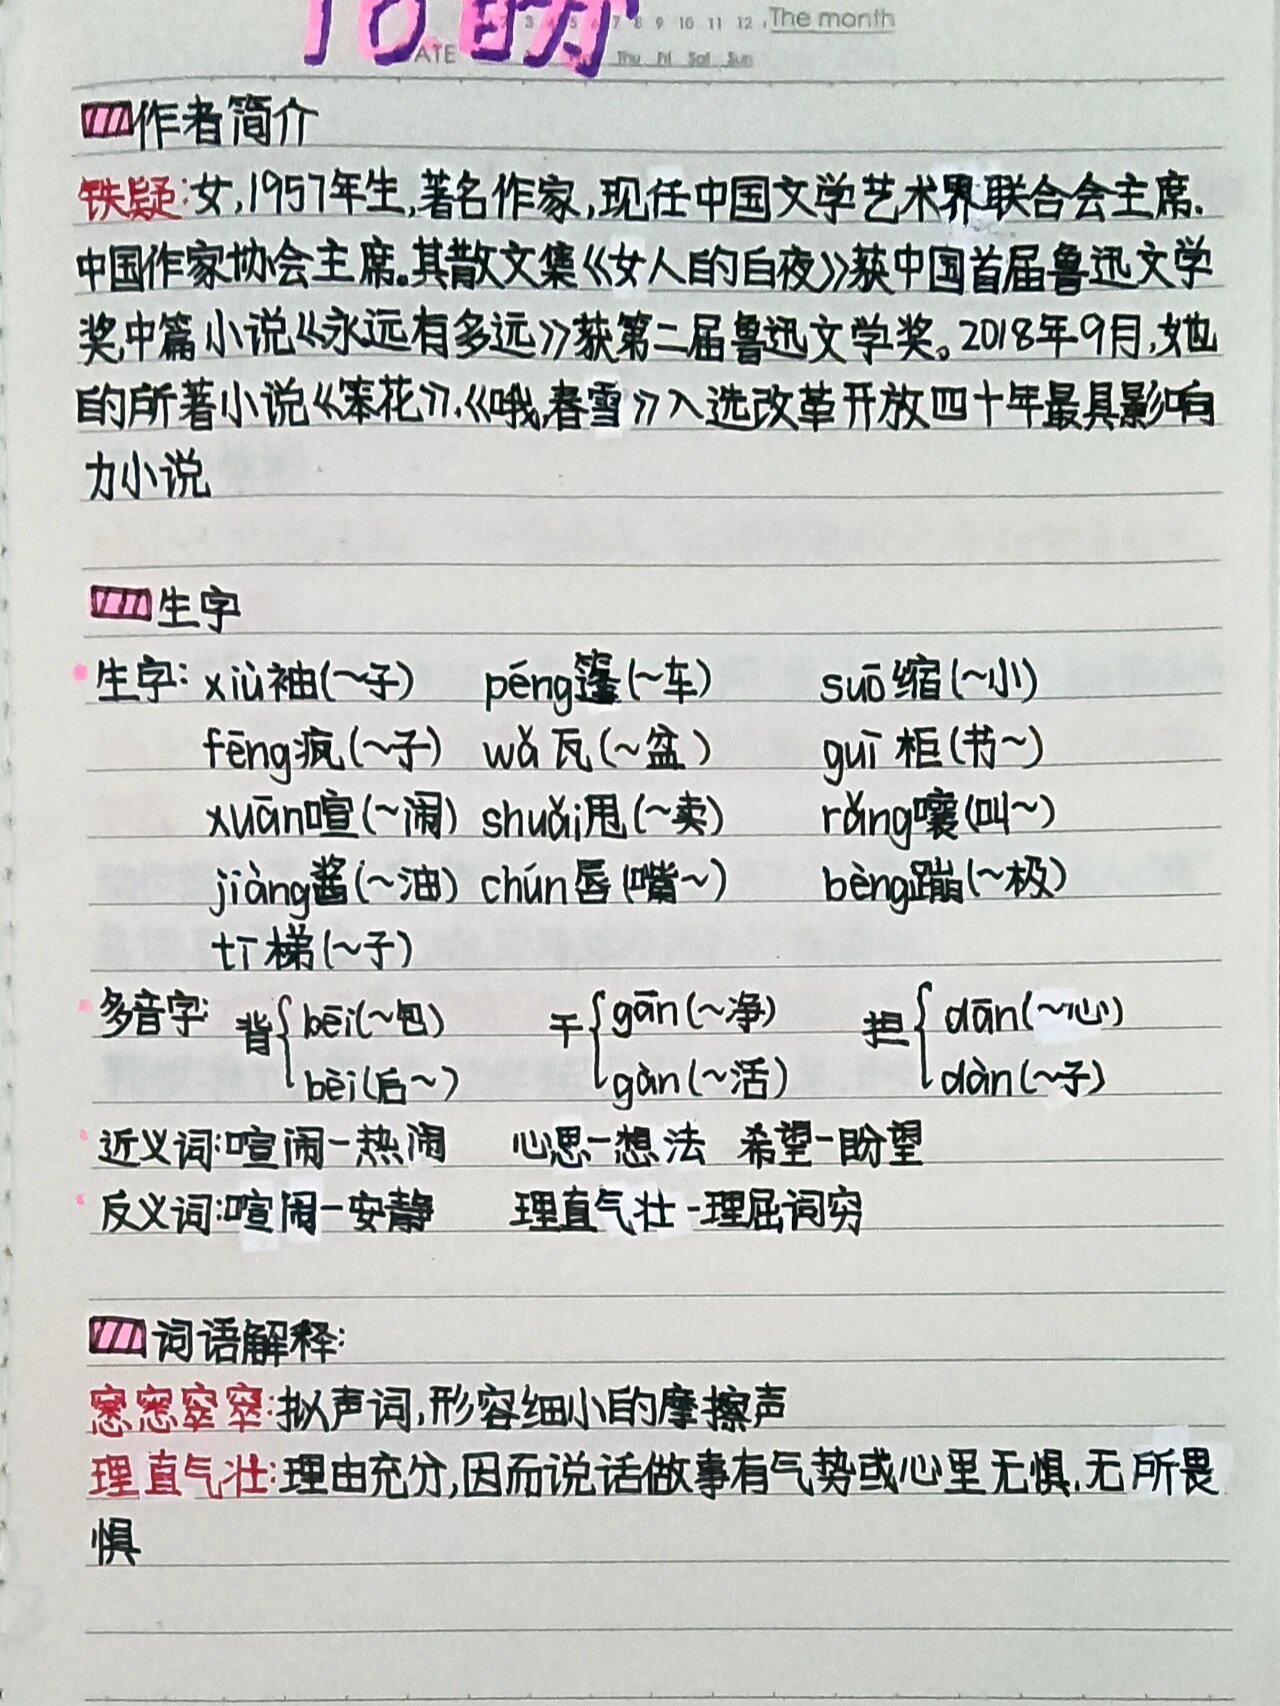 16.盼
3 4 5 6 7 8 9 10 11 12 . The month
ATE Thu Fri Sat Sun
作者简介
铁疑:女,1957年生,著名作家,现任中国文学艺术界联合会主席.
中国作家协会主席。其散文集《女人的白夜》获中国首届鲁迅文学
奖中篇小说《永远有多远》获第二届鲁迅文学奖。2018年9月,她
的所著小说《笨花》、《哦,春雪》入选改革开放四十年最具影响
力小说
生字
生字: xiù袖(~子) péng篷(~车) suō缩(~小)
fēng疯(~子) wǎ瓦(~盆) guī柜(书~)
xuān喧(~闹) shuǎi甩(~卖) rǎng嚷(叫~)
jiàng酱(~油) chún唇(嘴~) bèng蹦(~极)
tī梯(~子)
多音字: 背{bēi(~包) 干{gān(~净) 担{dān(~心)
bèi(后~) gàn(~活) dàn(~子)
近义词:喧闹-热闹 心思-想法 希望-盼望
反义词:喧闹-安静 理直气壮-理屈词穷
词语解释:
窸窸窣窣:拟声词,形容细小的摩擦声
理直气壮:理由充分,因而说话做事有气势或心里无惧.无所畏
惧